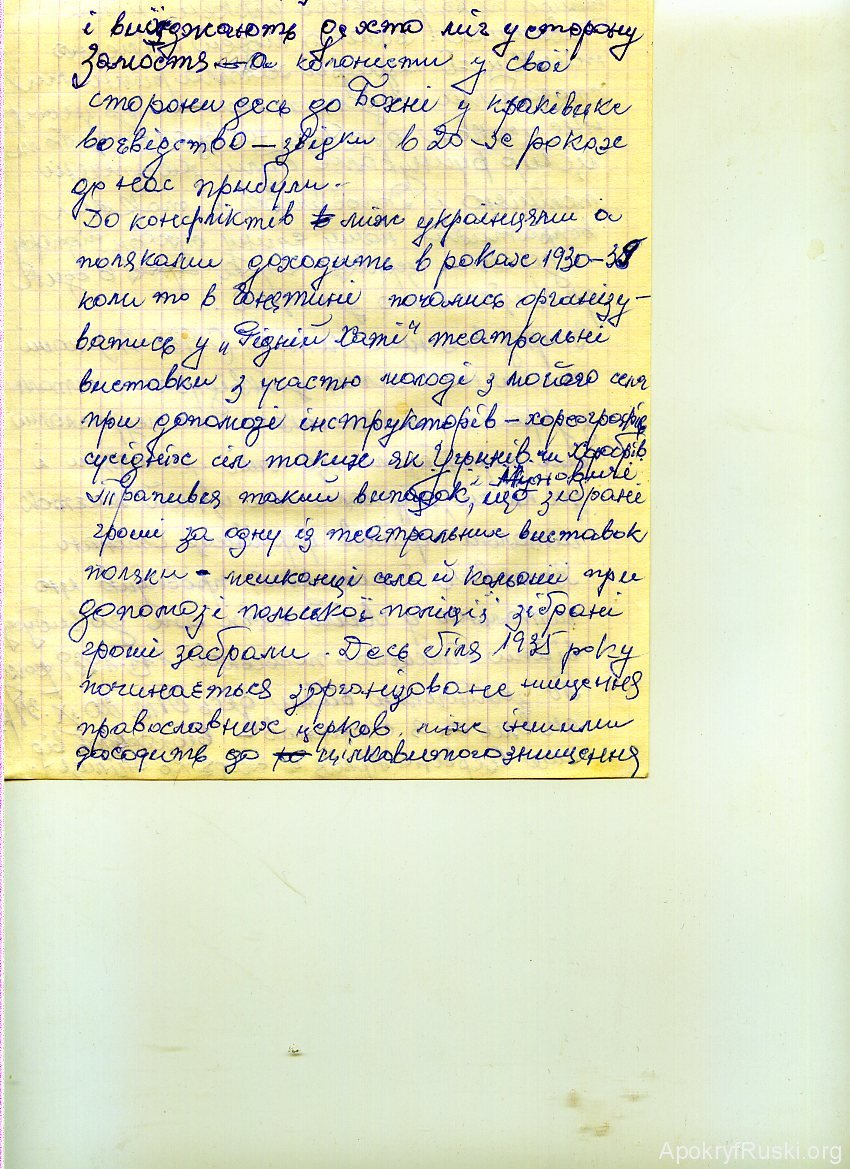 і виїжджають де хто міг у сторону
Замостя а колоністи у свої
сторони десь до Бохні у краківське
воєвідство – звідки в 20-х роках
до нас прибули.
До конфліктів між українцями а
поляками доходить в роках 1930-38
коли то в Гонятині почались організу-
ватись у „Рідній Хаті" театральні
виставки з участю молоді з мойого села
при допомозі інструкторів – хореографів
сусідніх сіл таких як Угринів чи Хоробрів
і Жуновичі
Трапився такий випадок, що зібрані
гроші за одну із театральних виставок
поляки - мешканці села й кольонії при
допомозі польської поліції зібрані
гроші забрали. Десь біля 1935 року
починається зорганізоване нищення
православних церков, між іншими
доходить до цілковитого знищення
ApokryfRuski.org